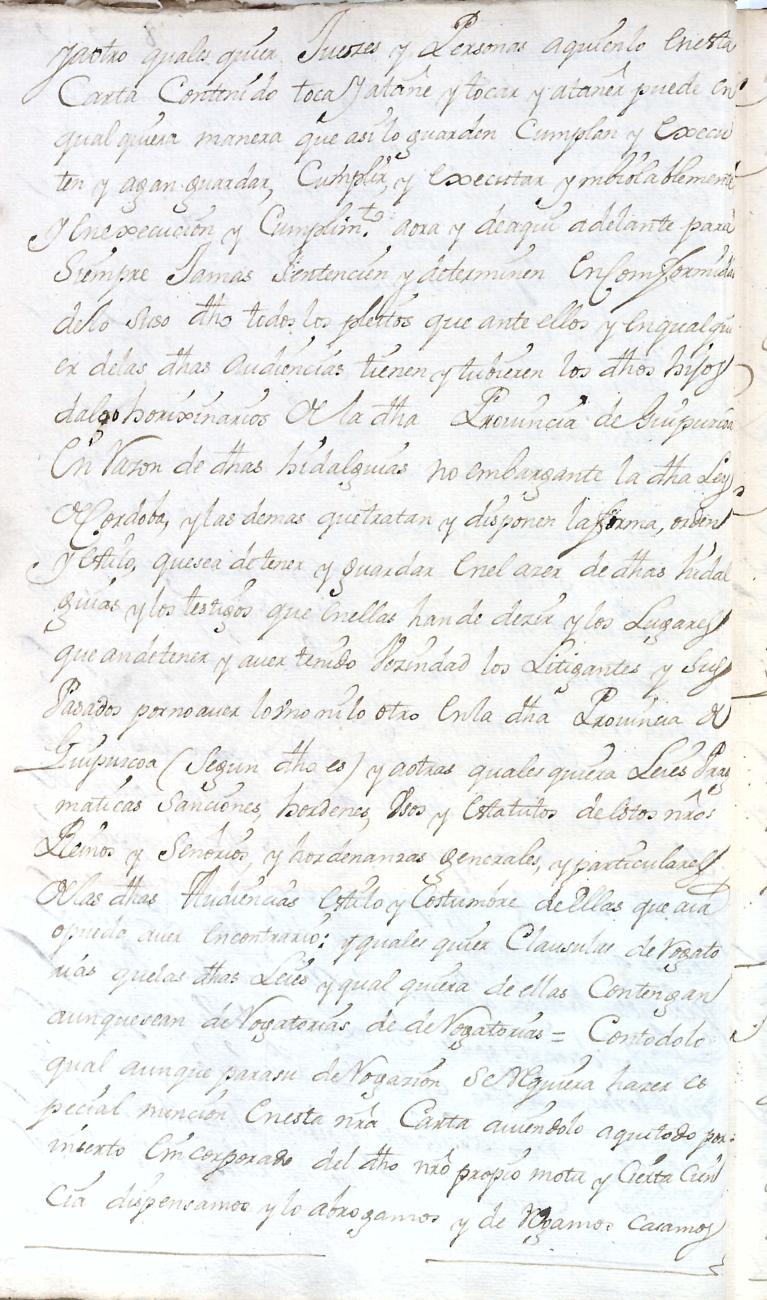 y aotro quales quier Juezes y Personas aquienlo Enesta
Carta Contenido toca Y atañe y tocar y atañer puede en
qual quiera manera que asi lo guarden Cumplan y Execu
ten y agan guardar, Cumplir, y executar ymbiolablemente
Y enexecucion y Cumplim.to aora y deaqui adelante para
Siempre Jamas Sentencien y determinen En Comformidad
delo suso dho todos los pleitos que ante ellos y enqualqui
er delas dhas Audiencias tienen y tubieren los dhos hijos
dalgo horixinarios de la dha Provincia de Guipuzcoa
En Razon de dhas hidalguias no embargante la dha Ley
de Cordoba, y las demas que tratan y disponen la forma, orden
y estilo, quesea detener y guardar enel azer de dhas hidal
guias y los testigos que enellas han de dezir y los Lugares
que andetener y aver tenido Vezindad los Litigantes y Sus
Pasados pornoaver lo Vno ni lo otro enla dha Provincia de
Guipuscoa (Segun dho es) y aotras quales quiera Leies Prag
maticas Sanciones, hordenes, Vsos y estatutos destos nros
Reinos y Señorios, y hordenanzas generales, y particulares
de las dhas Audiencias estilo y Costumbre de ellas que aia
o pueda aver encontrario: y quales quier Clausulas de Rogato
rias quelas dhas Leies y qual quiera de ellas Contengan
aunquesean de Rogatorias de de Rogatorias = Contodolo
qual aunque parasu de Rogazion Se Requiera hazer es
pecial mencion enesta nra Carta aviendolo aquitodo por
inserto e incorporado del dho nro propio motu y Cierta Cien
cia dispensamos y lo abrogamos y de Rogamos casamos